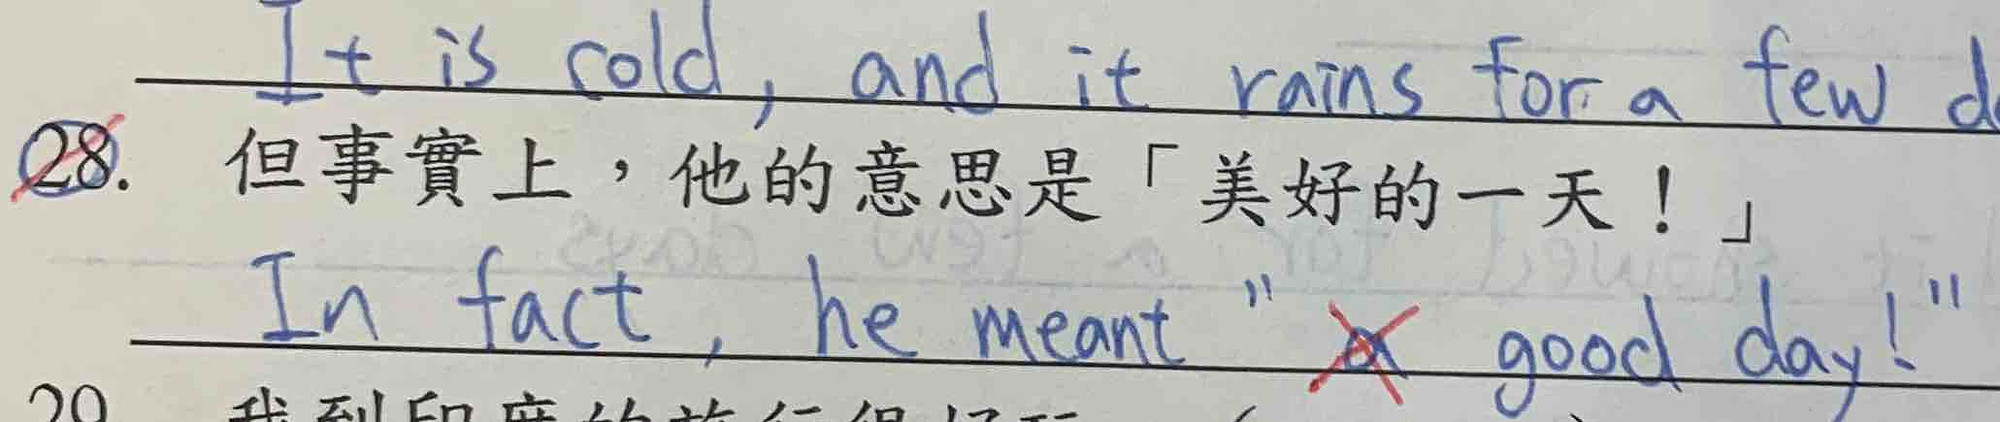 It is cold, and it rains for a few
28. 但事實上，他的意思是「美好的一天！」
In fact, he meant "a good day!"
29. 我到印度的旅行很好玩。